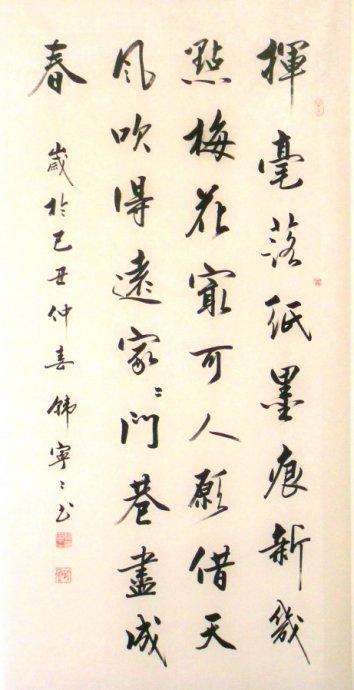 揮毫落紙墨痕新幾
點梅花寂可人願借天
風吹得遠家〻門巷盡成
春
歲於己丑仲喜韩寧〻书